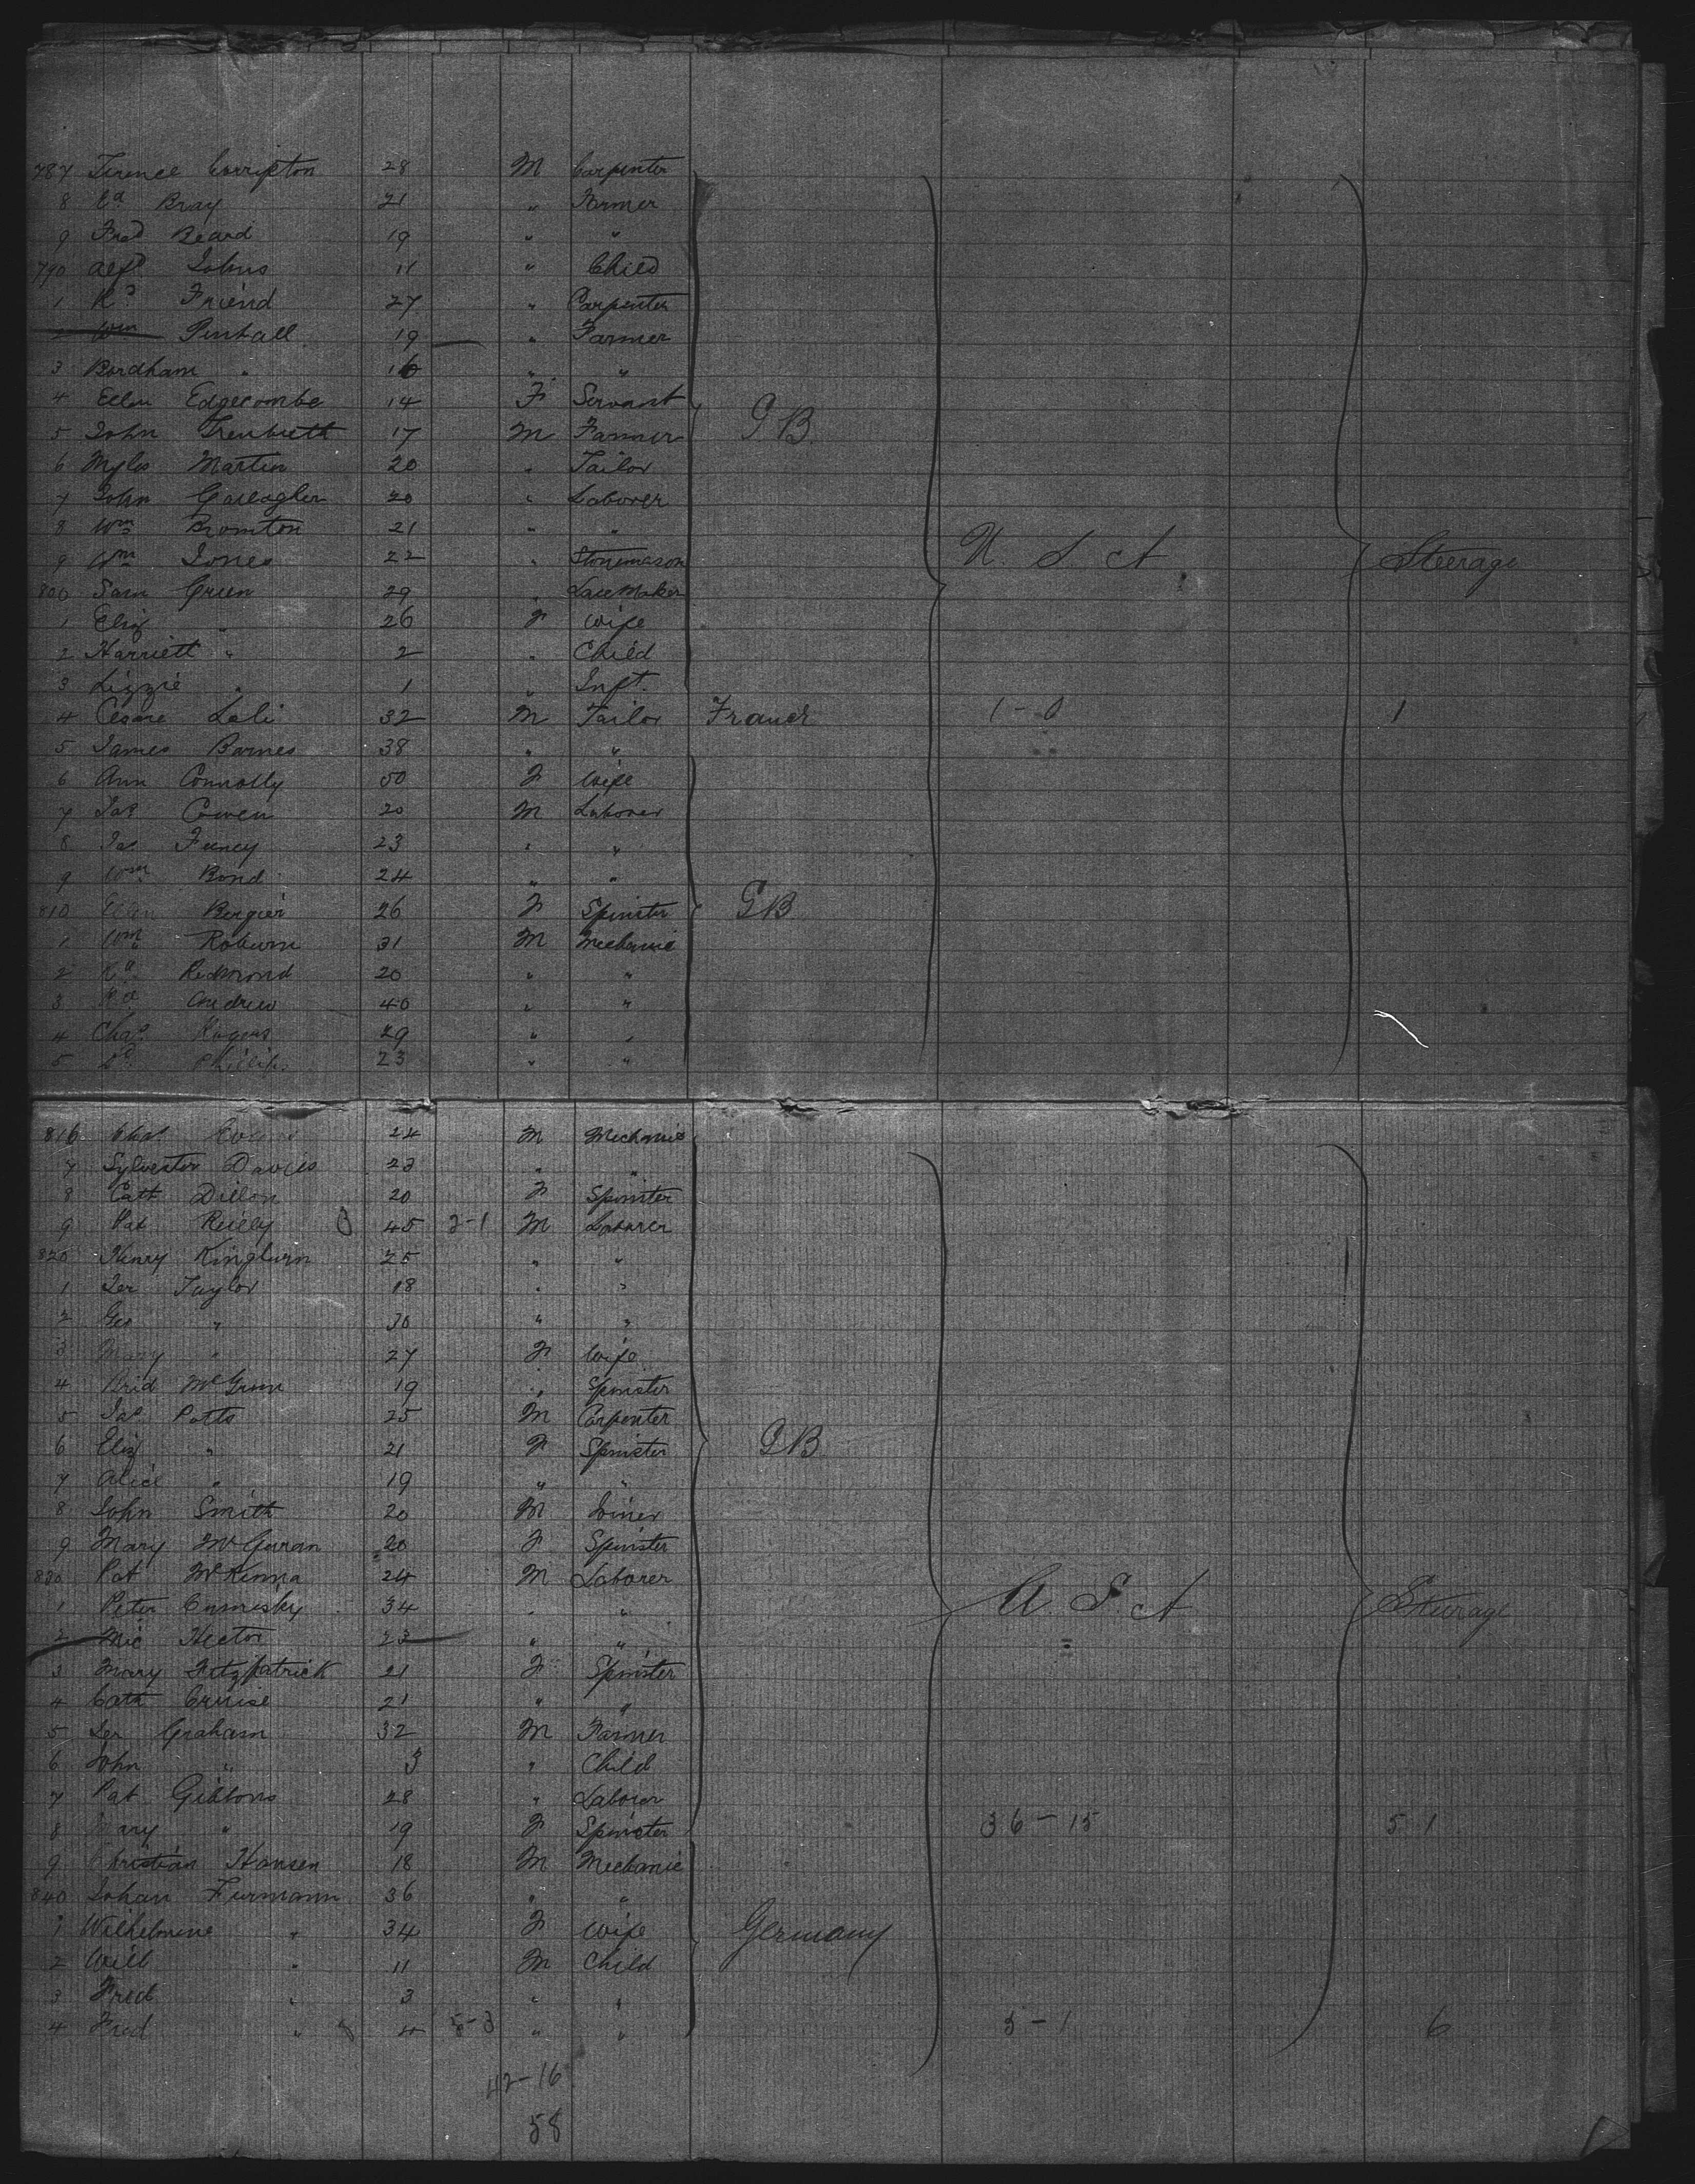 787 Terence Corripton 28 M Carpenter
8 Ed Bray 21 " Farmer
9 Fred Beard 19 " "
790 Alfd Johns 11 " Child
1 Rd Friend 27 " Carpenter
2 Wm Penhall 19 " Farmer
3 Bordham " 16 " "
4 Ellen Edgecombe 14 F Servant G B
5 John Trenbreth 17 M Farmer
6 Myles Martin 20 " Tailor
7 John Gallagher 20 " Laborer
8 Wm Bromton 21 " "
9 Wm Jones 22 " Stonemason U. S. A Steerage
800 Sam Green 29 " Lace Maker
1 Eliz " 26 F Wife
2 Harriett " 2 " Child
3 Lizzie " 1 " Inft.
4 Cesare Lali 32 M Tailor France 1 - 0 1
5 James Barnes 38 " "
6 Ann Connolly 50 F Wife
7 Jas Cowen 20 M Laborer
8 Jas Funcy 23 " "
9 Wm Bond 24 " "
810 Ellen Bergier 26 F Spinster G B
1 Wm Roburn 31 M Mechanic
2 Rd Redmond 20 " "
3 Rd Andrew 40 " "
4 Chas Rogers 29 " "
5 Phillips 23 " "
816 Chas 24 M Mechanic
7 Sylvester Davies 23 " "
8 Cath Dillon 20 F Spinster
9 Pat Reilly 45 2-1 M Laborer
820 Henry Kingburn 25 " "
1 Jer Taylor 18 " "
2 Geo " 30 " "
3 Mary " 27 F Wife
4 Brid McGrun 19 " Spinster
5 Jas Potts 25 M Carpenter
6 Eliz " 21 F Spinster G B
7 Alice " 19 " "
8 John Smith 20 M Joiner
9 Mary McGuran 20 F Spinster
830 Pat McKenna 24 M Laborer
1 Peter Cumisky 34 " " U. S. A Steerage
2 Mic Hector 23 " "
3 Mary Fitzpatrick 21 F Spinster
4 Cath Cruise 21 " "
5 Jer Graham 32 M Farmer
6 John " 3 " Child
7 Pat Gibbons 28 " Laborer
8 Mary " 19 F Spinster 36 - 15 51
9 Christian Hansen 18 M Mechanic
840 Johan Furmann 36 " "
1 Wilhelmine " 34 F Wife Germany
2 Will " 11 M Child
3 Fred " 3 " "
4 Fred " 4 5-3 " " 5 - 1 6
42-16
58